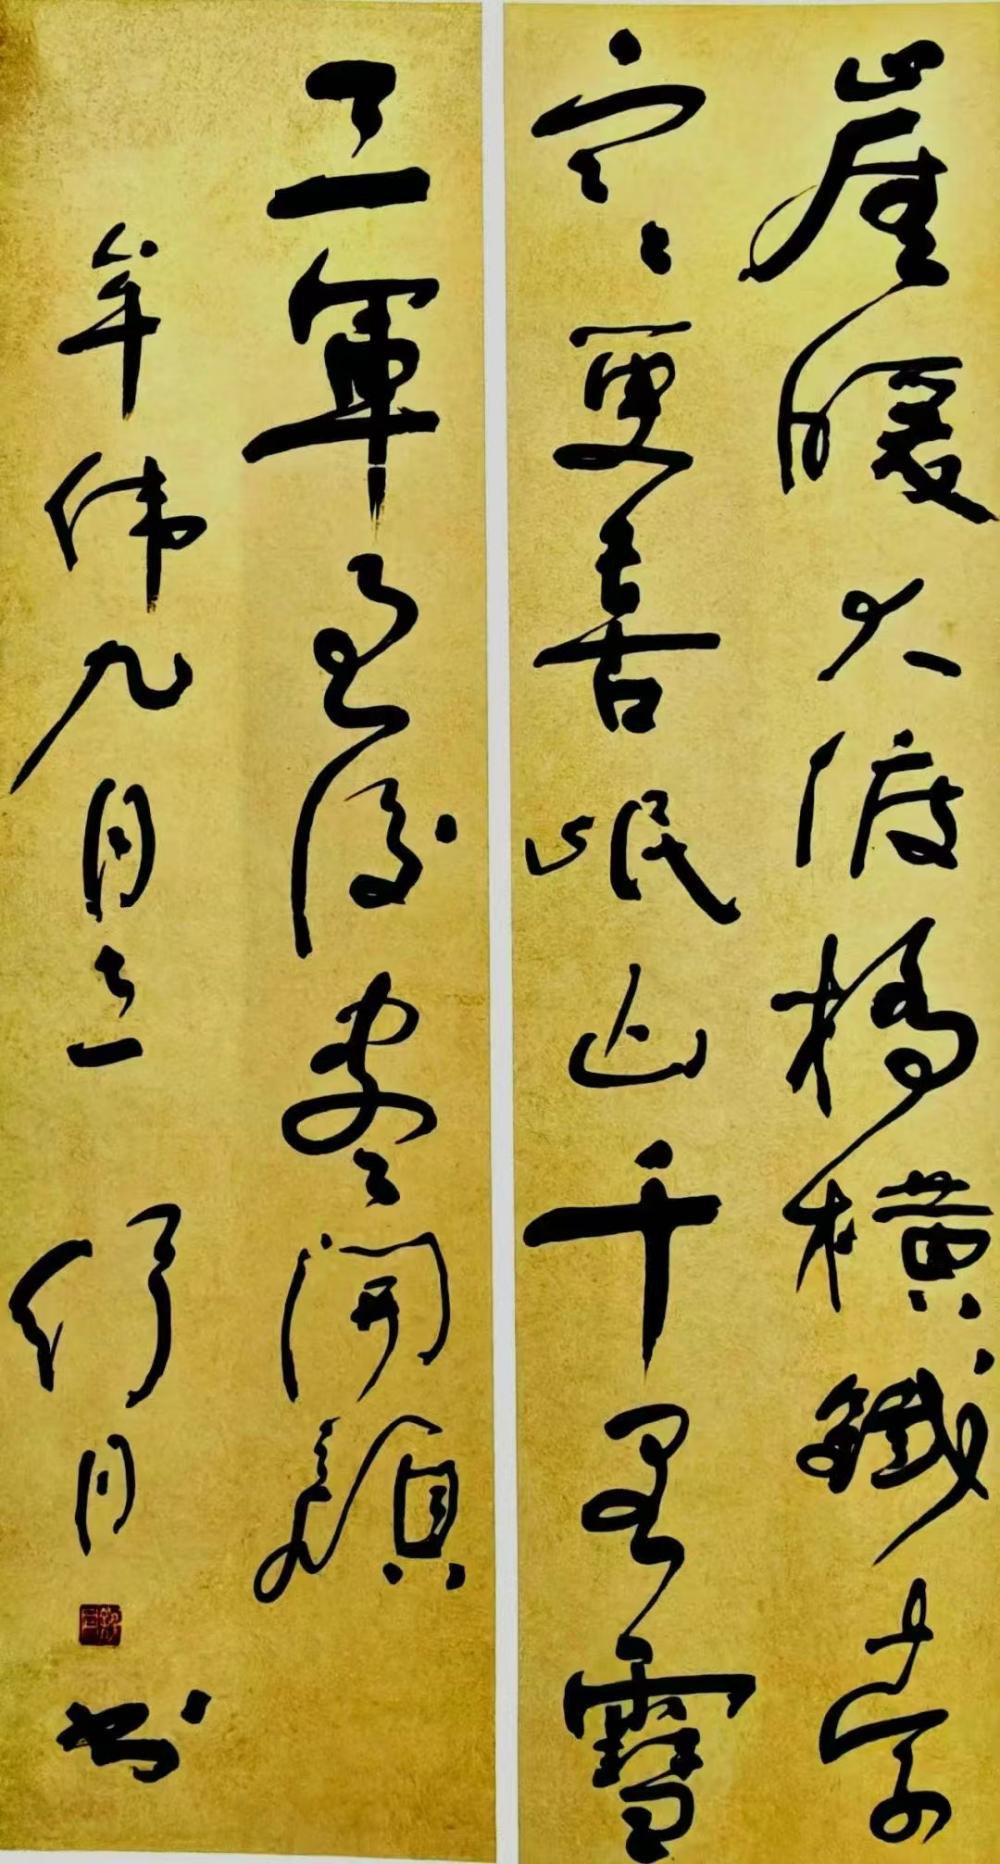 崖暖大渡橋橫鐵索
寒更喜岷山千里雪
三軍過後盡開顏
九月
書